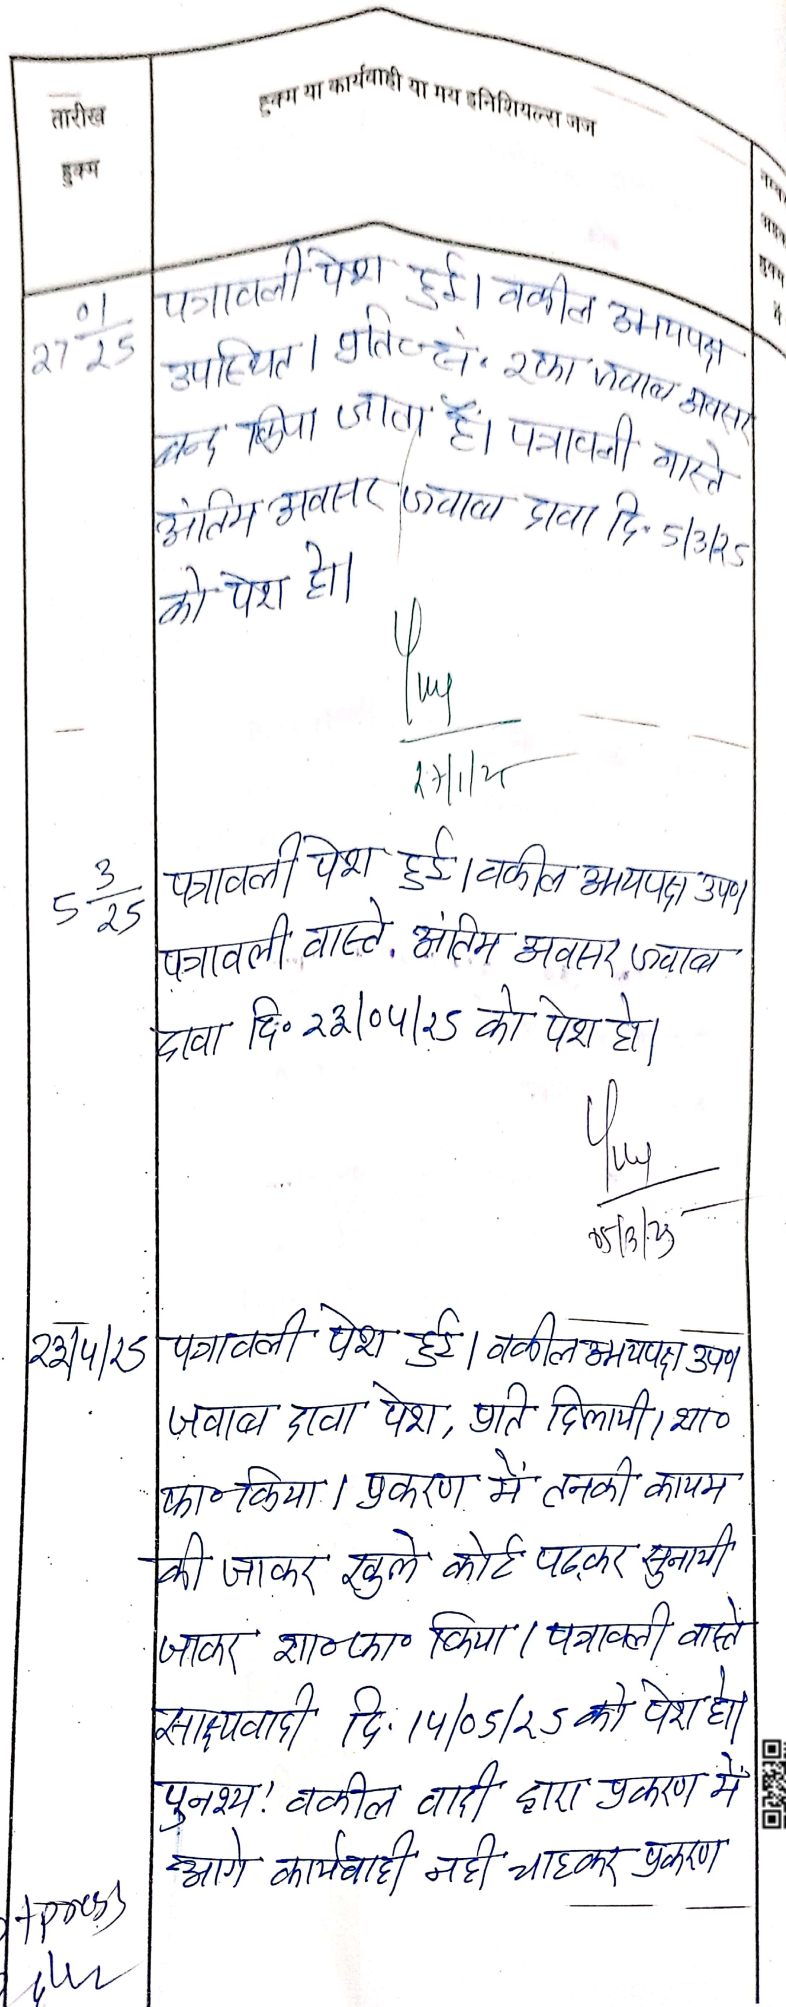 तारीख
हुक्म
हुक्म या कार्यवाही या मय इनिशियल्स जज
27 01/25 पत्रावली पेश हुई। वकील उभयपक्ष
उपस्थित। प्रति० सं. 2 का जवाब अवसर
बन्द किया जाता है। पत्रावली वास्ते
अंतिम अवसर जवाब दावा दि. 5/3/25
को पेश हो।
27/1/25
5 3/25 पत्रावली पेश हुई। वकील उभयपक्ष उप०।
पत्रावली वास्ते. अंतिम अवसर जवाब
दावा दि० 23/04/25 को पेश हो।
05/3/25
23/4/25 पत्रावली पेश हुई। वकील उभयपक्ष उप०
जवाब दावा पेश, प्रति दिलायी। शा०
फा० किया। प्रकरण में तनकी कायम
की जाकर खुले कोर्ट पढकर सुनायी
जाकर शा० फा० किया। पत्रावली वास्ते
साक्ष्यवादी दि. 14/05/25 को पेश हो।
पुनश्य! वकील वादी द्वारा प्रकरण में
आगे कार्यवाही नही चाहकर प्रकरण